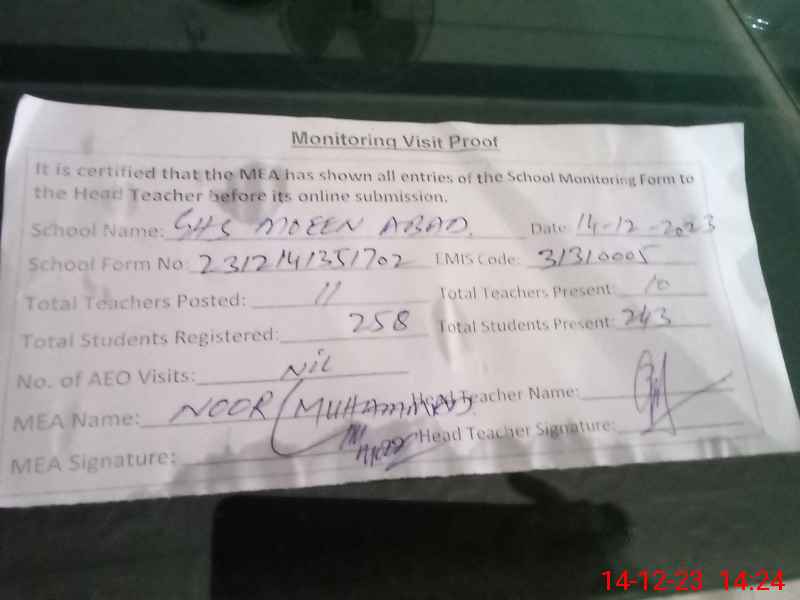 Monitoring Visit Proof
It is certified that the MEA has shown all entries of the School Monitoring Form to
the Head Teacher before its online submission.
School Name: GHS MOEEN ABAD. Date: 14-12-2023
School Form No: 2312141351702 EMIS Code: 31310005
Total Teachers Posted: 11 Total Teachers Present: 10
Total Students Registered: 258 Total Students Present: 243
No. of AEO Visits: Nil
MEA Name: NOOR MUHAMMAD Head Teacher Name:
MEA Signature: Head Teacher Signature:
14-12-23 14:24